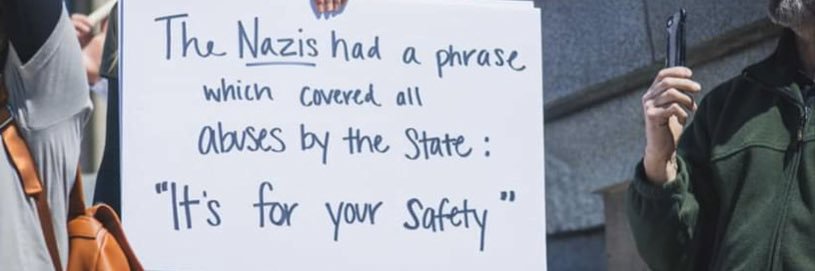 The Nazis had a phrase
which covered all
abuses by the State:
"It's for your safety"